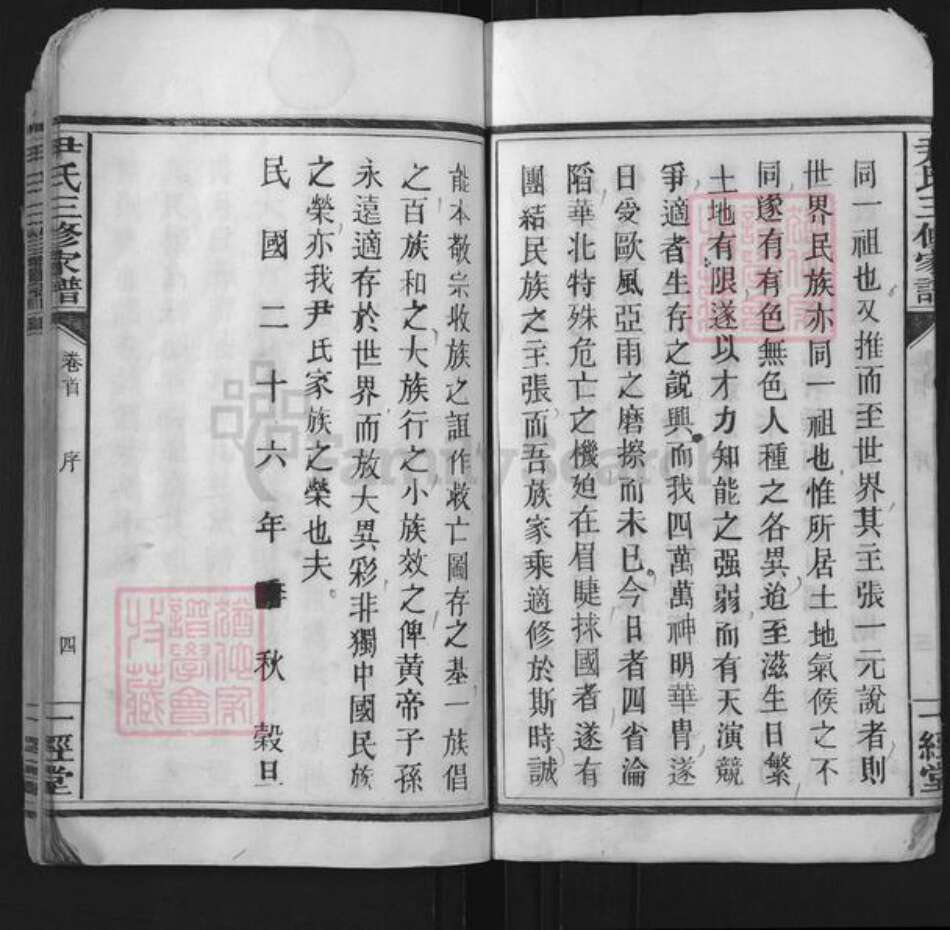 尹氏三修家譜
一經堂
同一祖也又推而至世界其主張一元說者則
世界民族亦同一祖也惟所居土地氣候之不
同遂有有色無色人種之各異迨至滋生日繁
土地有限遂以才力知能之强弱而有天演競
爭適者生存之說興而我四萬萬神明華胄遂
日受歐風亞雨之磨擦而未已今日者四省淪
陷華北特殊危亡之機迫在眉睫救國者遂有
團結民族之主張而吾族家乘適修於斯時誠
能本敬宗收族之誼作救亡圖存之基一族倡
之百族和之大族行之小族效之俾黃帝子孫
永遠適存於世界而放大異彩非獨中國民族
之榮亦我尹氏家族之榮也夫
民國二十六年 秋穀旦
尹氏三修家譜
卷首
序
四
一經堂
FamilySearch
譜學會
收藏